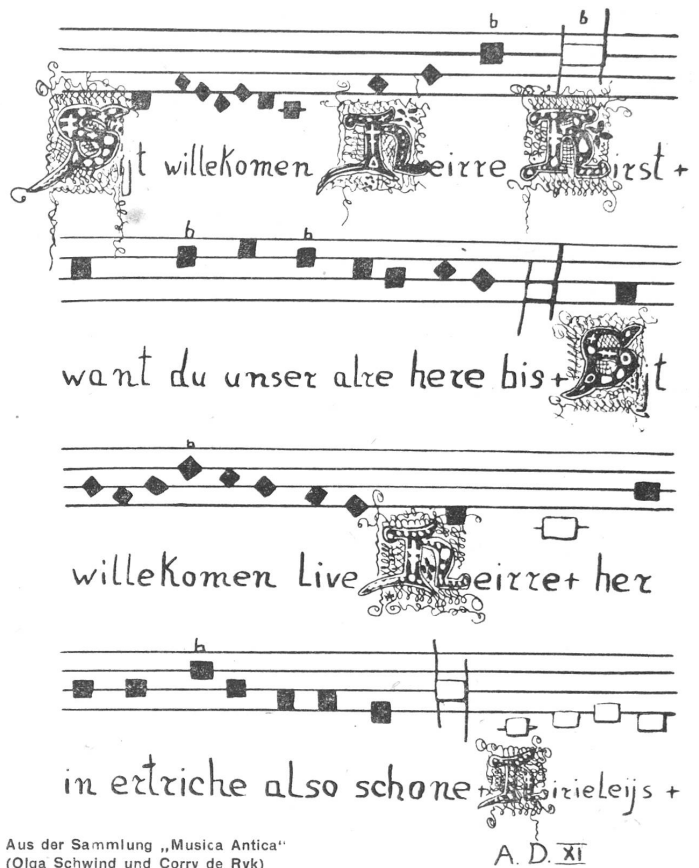 Sijt willekomen Heirre Kirst +
want du unser alre here bis + Sijt
willekomen Live Heirre + her
in ertriche also schone + Kirieleijs +
A. D. XI
Aus der Sammlung „Musica Antica“
(Olga Schwind und Corry de Ryk)